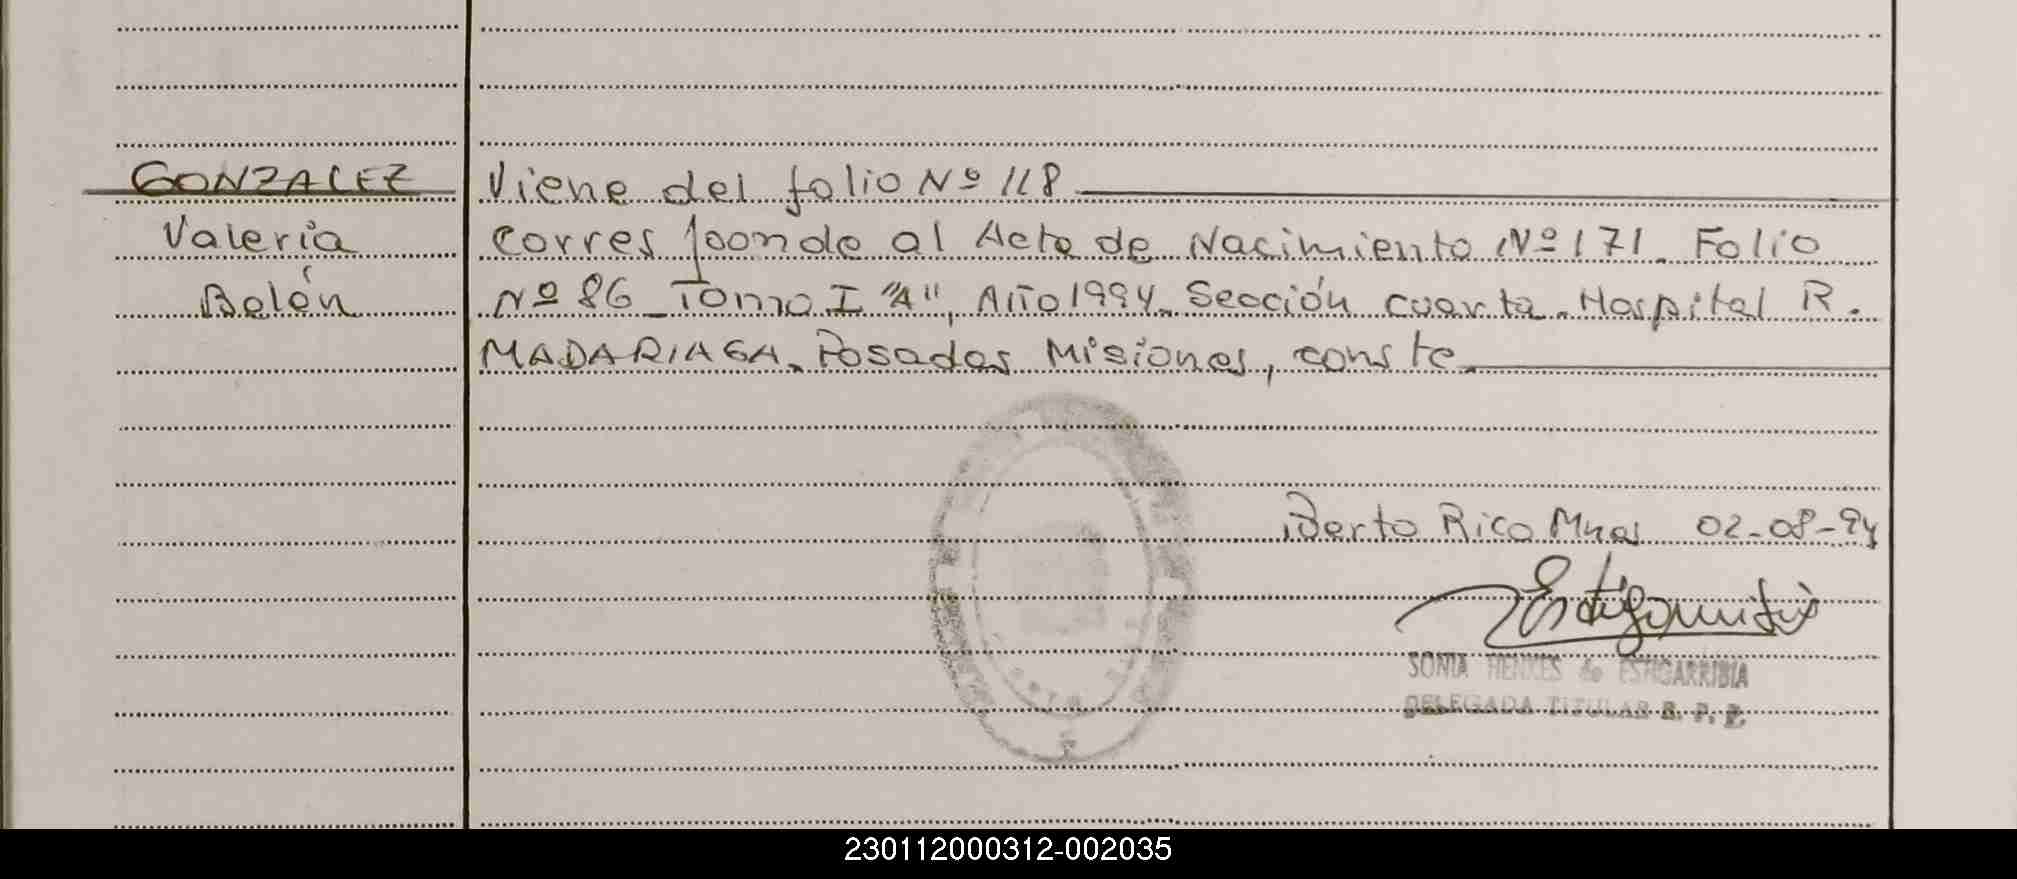 GONZALEZ
Valeria
Belén
Viene del folio Nº 118
Corresponde al Acta de Nacimiento Nº 171. Folio
Nº 86 Tomo I "A", Año 1994. Sección cuarta. Hospital R.
MADARIAGA. Posadas Misiones, conste.
Puerto Rico Mnes 02-08-94
SONIA HENXES de ESTIGARRIBIA
DELEGADA TITULAR R. P. P.
230112000312-002035